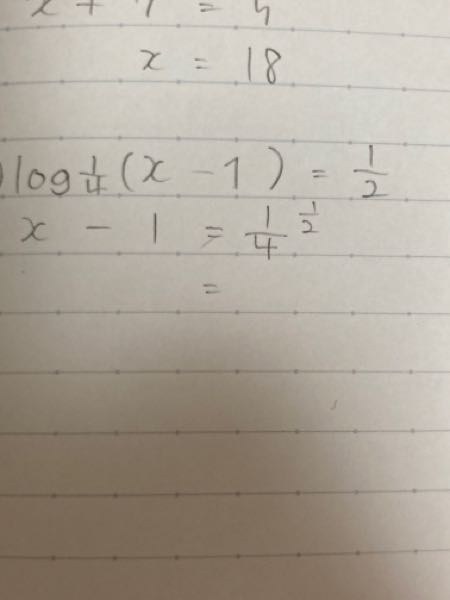 x = 18
log 1/4 (x - 1) = 1/2
x - 1 = 1/4 ^1/2
=